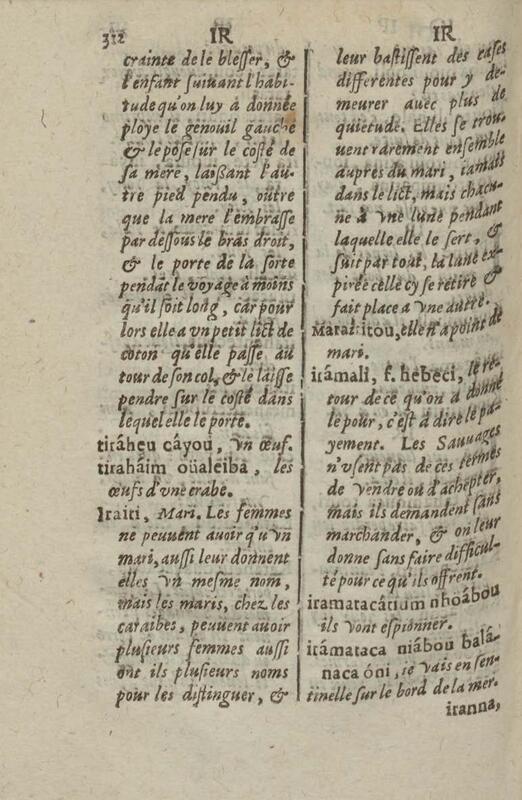 312 IR IR
crainte de le blesser, &
l'enfant suiuant l'habi-
tude qu'on luy à donnée
ploye le genouil gauche
& le pose sur le costé de
sa mere, laissant l'au-
tre pied pendu, outre
que la mere l'embrasse
par dessous le bras droit,
& le porte de la sorte
pendãt le voyage à moins
qu'il soit long, car pour
lors elle a vn petit lict de
coton qu'elle passe au
tour de son col, & le laisse
pendre sur le costé dans
lequel elle le porte.
tiráheu câyou, vn œuf.
tiraháim oüaleiba, les
œufs d'vne crabe.
Iraiti, Mari. Les femmes
ne peuuent auoir qu'vn
mari, aussi leur donnent
elles vn mesme nom,
mais les maris, chez les
caraibes, peuuent auoir
plusieurs femmes aussi
ont ils plusieurs noms
pour les distinguer, &
leur bastissent des cases
differentes pour y de-
meurer auec plus de
quietude. Elles se trou-
uent rarement ensemble
aupres du mari, iamais
dans le lict, mais chacu-
ne à vne lune pendant
laquelle elle le sert, &
suit par tout, la lune ex-
pirée celle cy se retire &
fait place a vne autre.
Matakitou, elle n'a point de
mari.
irámali, f. hebeci, le re-
tour de ce qu'on à donné
le pour, c'est à dire le pa-
yement. Les Sauuages
n'vsent pas de ces termes
de vendre ou d'achepter,
mais ils demandent sans
marchander, & on leur
donne sans faire difficul-
té pour ce qu'ils offrent.
iramatacátium nhoábou
ils vont espionner.
irámataca niábou balá-
naca óni, ie vais en sen-
tinelle sur le bord de la mer.
iranna,